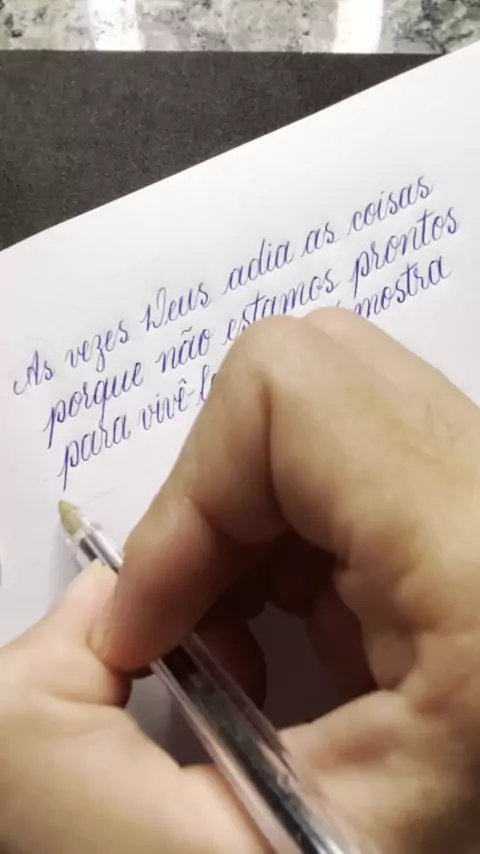 As vezes Deus adia as coisas
porque não estamos prontos
para mostra